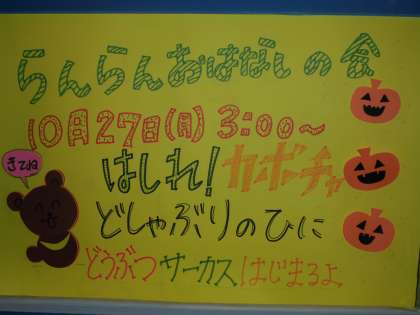 らんらんおはなしの会
10月27日(月) 3:00~
きてね
はしれ!カボチャ
どしゃぶりのひに
どうぶつサーカスはじまるよ